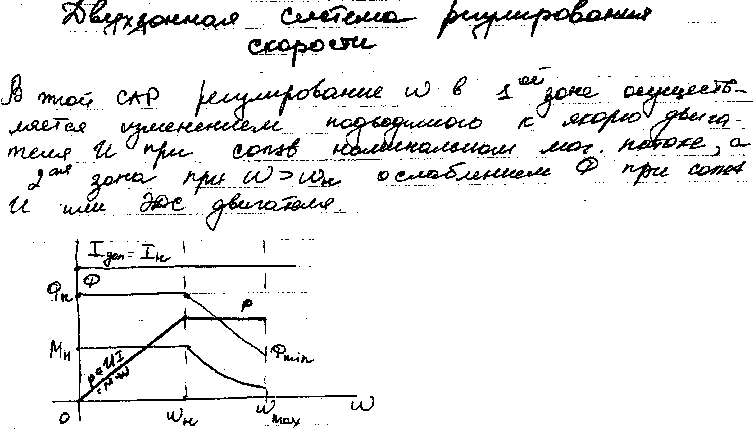 Двухзонная система регулирования
скорости
В этой САР регулирование ω в 1ой зоне осуществ-
ляется изменением подводимого к якорю двига-
теля U при const номинальном маг. потоке, а
2ая зона при ω>ωн ослаблением Ф при const
U или ЭДС двигателя.
Iдоп = Iн
Фн Ф
P
Mн
P=UI
=Mω
Фmin
0 ωн ωmax ω